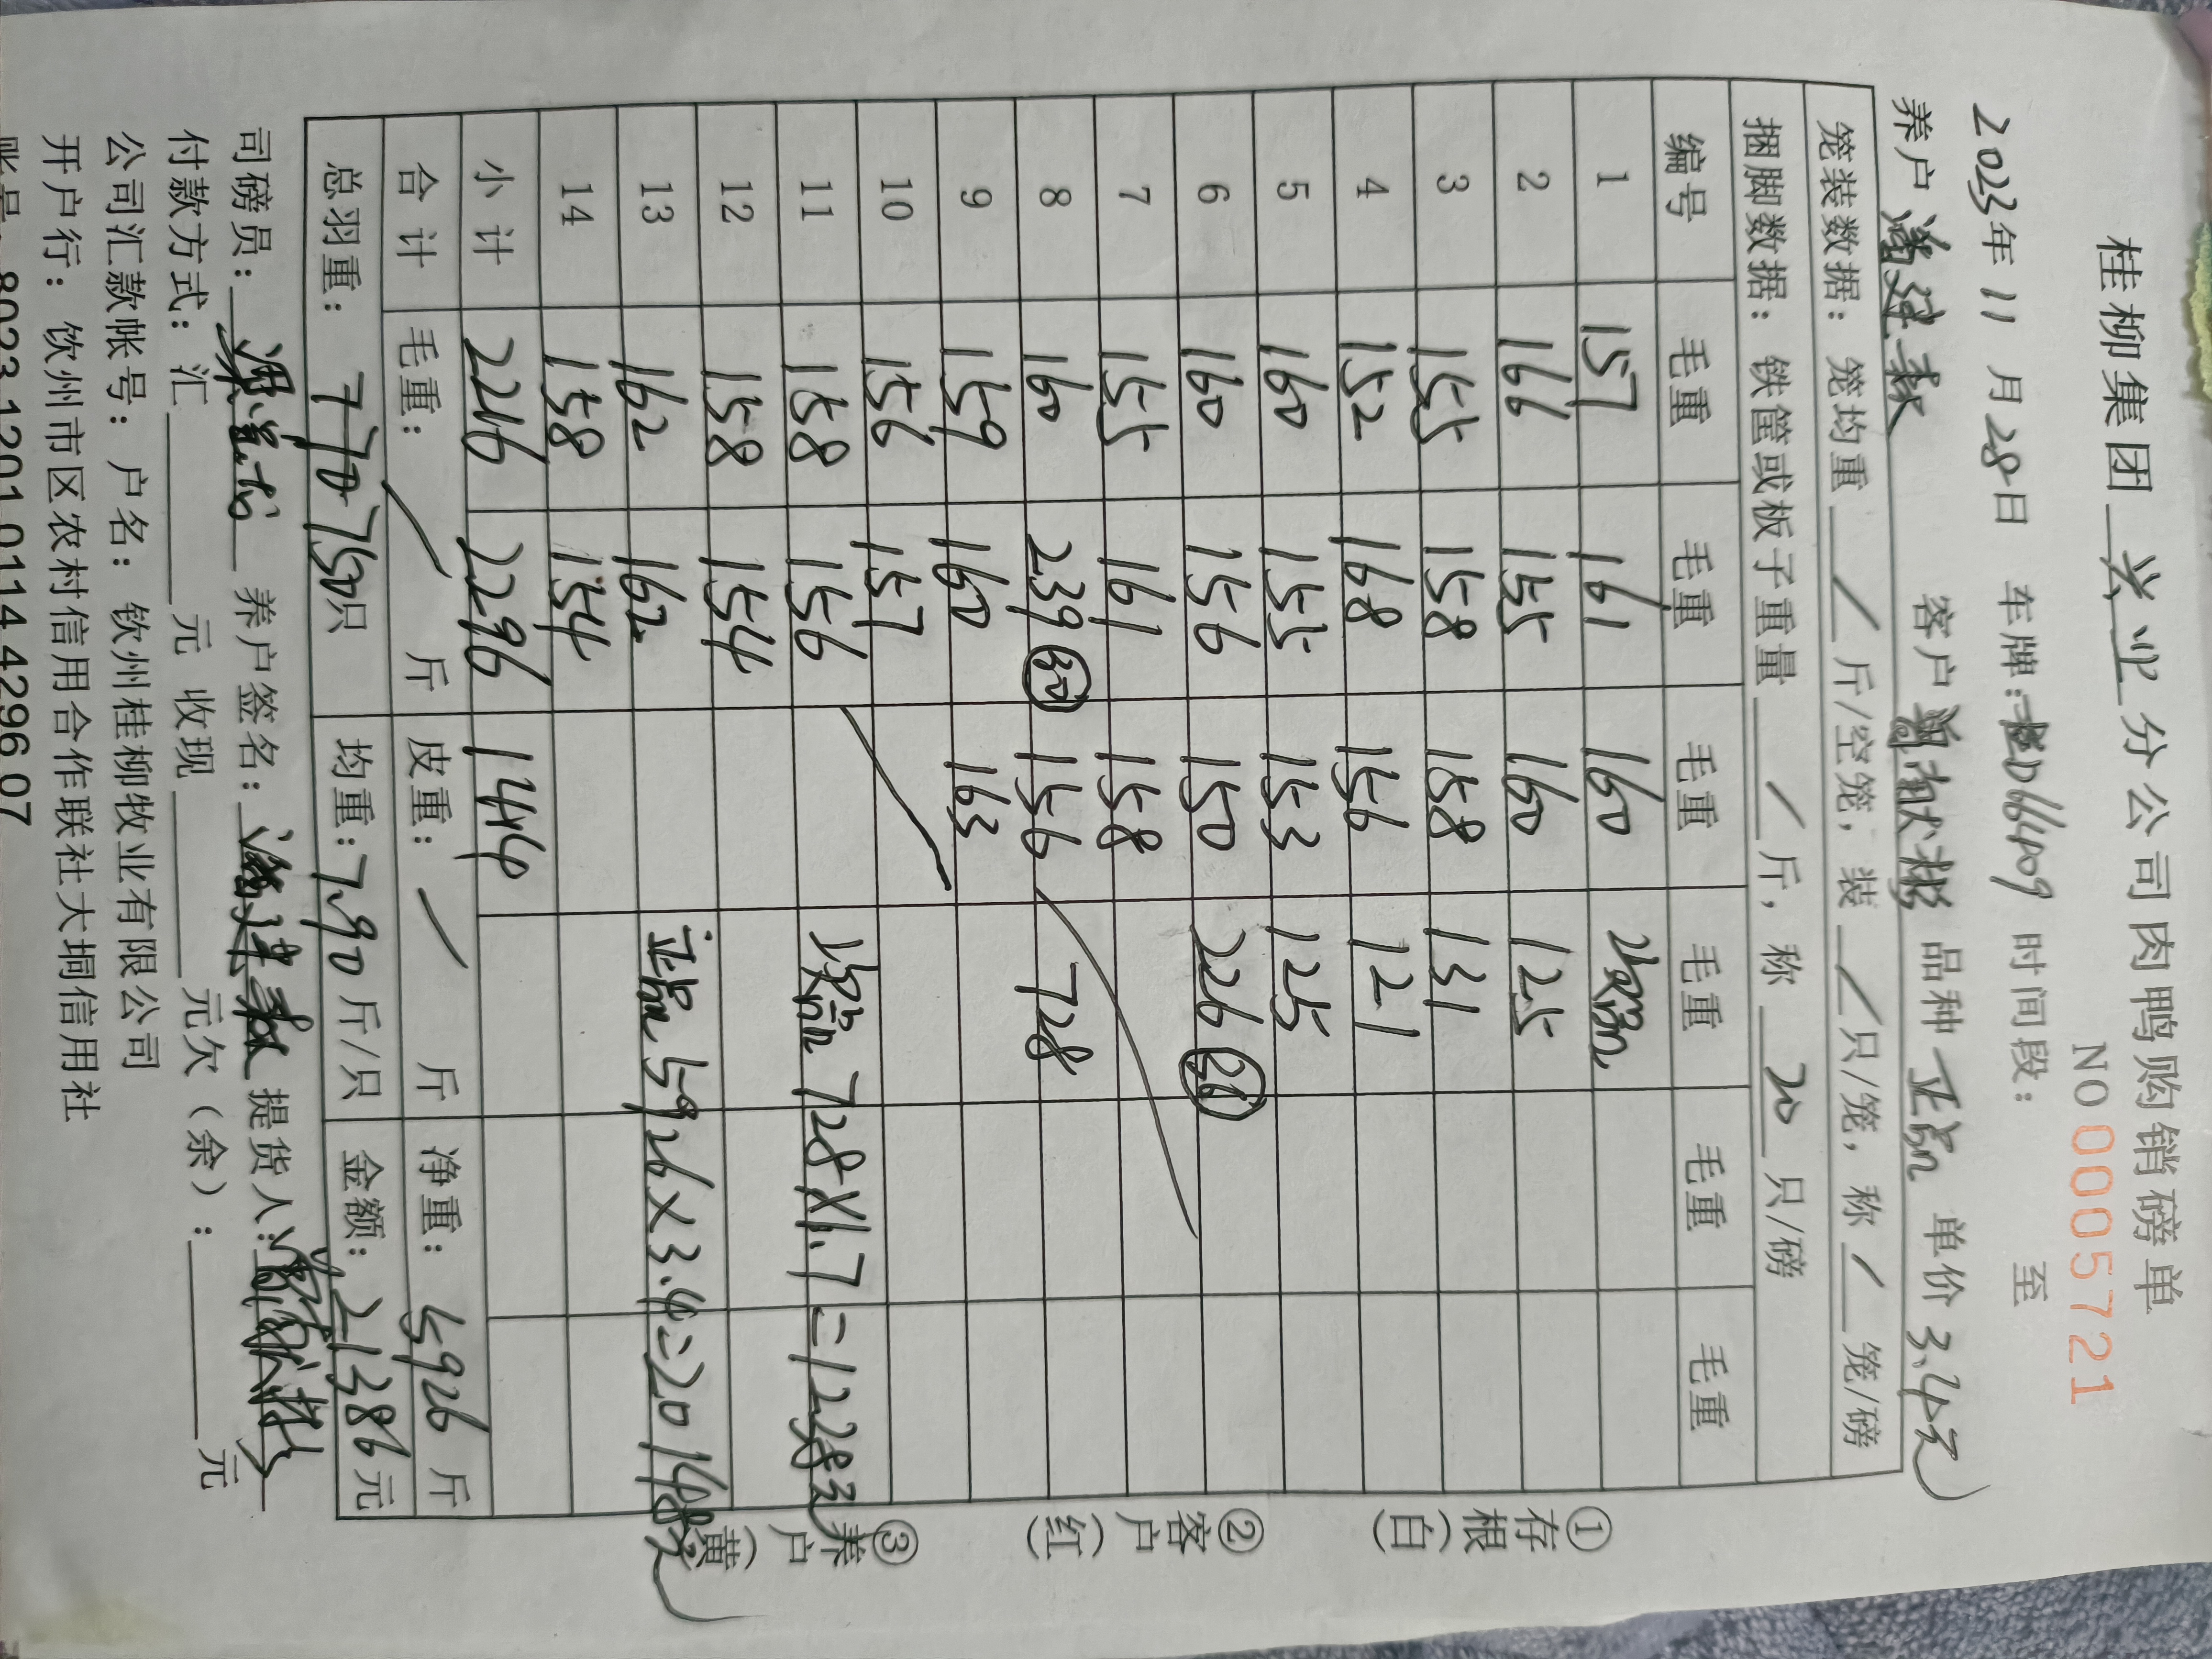 桂柳集团 兴业 分公司肉鸭购销磅单
NO 0005721
2023年 11 月 28日 车牌: D66409 时间段: 至
养户 客户 品种 正品 单价 3.4元
笼装数据: 笼均重 / 斤/空笼, 装 / 只/笼, 称 / 笼/磅
捆脚数据: 铁筐或板子重量 / 斤, 称 20 只/磅
编号 毛重 毛重 毛重 毛重 毛重 毛重
1 157 161 160
2 166 155 160 125
3 155 158 158 131
4 152 168 156 121
5 160 155 153 125
6 160 156 150 226 (26)
7 155 161 158
8 160 239 (30) 156 728
9 159 160 163
10 156 157
11 158 156 728×1.7=1238元
12 158 154
13 162 162 正品 5926×3.4=20148元
14 158 154
小计 2216 2296 1414
合计 毛重: / 斤 皮重: / 斤 净重: 5926 斤
总羽重: 770 750只 均重: 7.90 斤/只 金额: 21386元
司磅员: 养户签名: 提货人:
付款方式: 汇 元 收现 元欠（余）: 元
公司汇款帐号: 户名: 钦州桂柳牧业有限公司
开户行: 钦州市区农村信用合作联社大垌信用社
账号: 8023 1201 0114 4296 07
①存根(白) ②客户(红) ③养户(黄